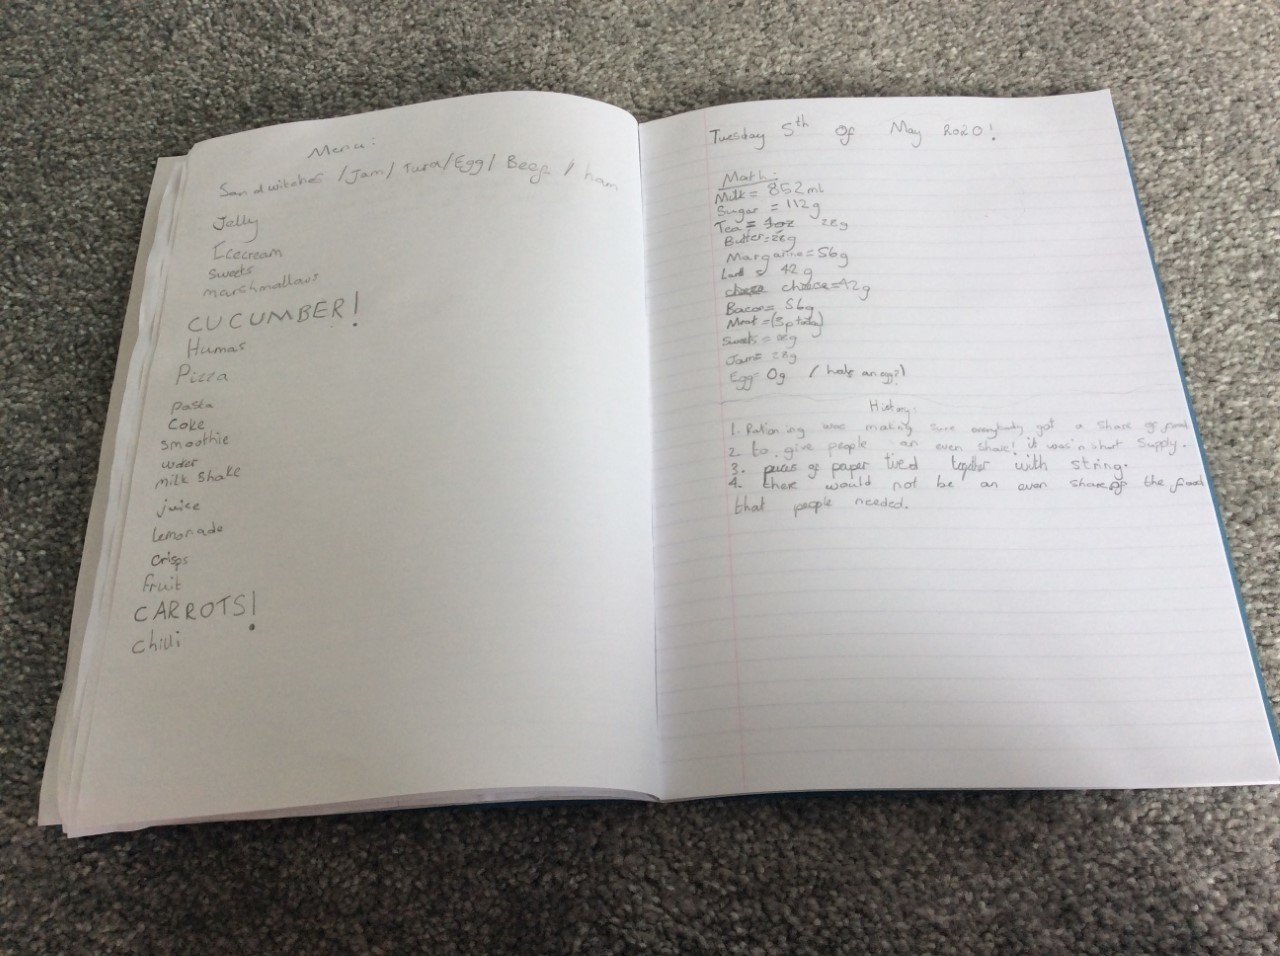 Menu:
Sandwitches /Jam/ Tuna/Egg/ Beef / ham
Jelly
Icecream
sweets
marshmallows
CUCUMBER!
Humas
Pizza
pasta
Coke
smoothie
water
milk shake
juice
lemonade
crisps
fruit
CARROTS!
chilli
Tuesday 5th of May 2020!
Math:
Milk = 852ml
Sugar = 112g
Tea = 4oz 28g
Butter=28g
Margarine=56g
Lard = 42g
cheese=42g
Bacon= 56g
Meat =(3p today)
Sweets = 28g
Jam= 28g
Egg= 0g (half an egg?)
History:
1. Rationing was making sure everybody got a share of food
2. to give people an even share! it was in short supply.
3. pieces of paper tied together with string.
4. there would not be an even share of the food
that people needed.